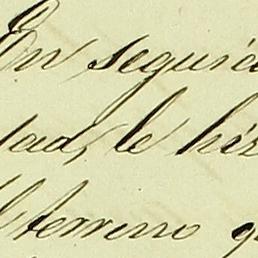 En seguida
dad, le his
terreno